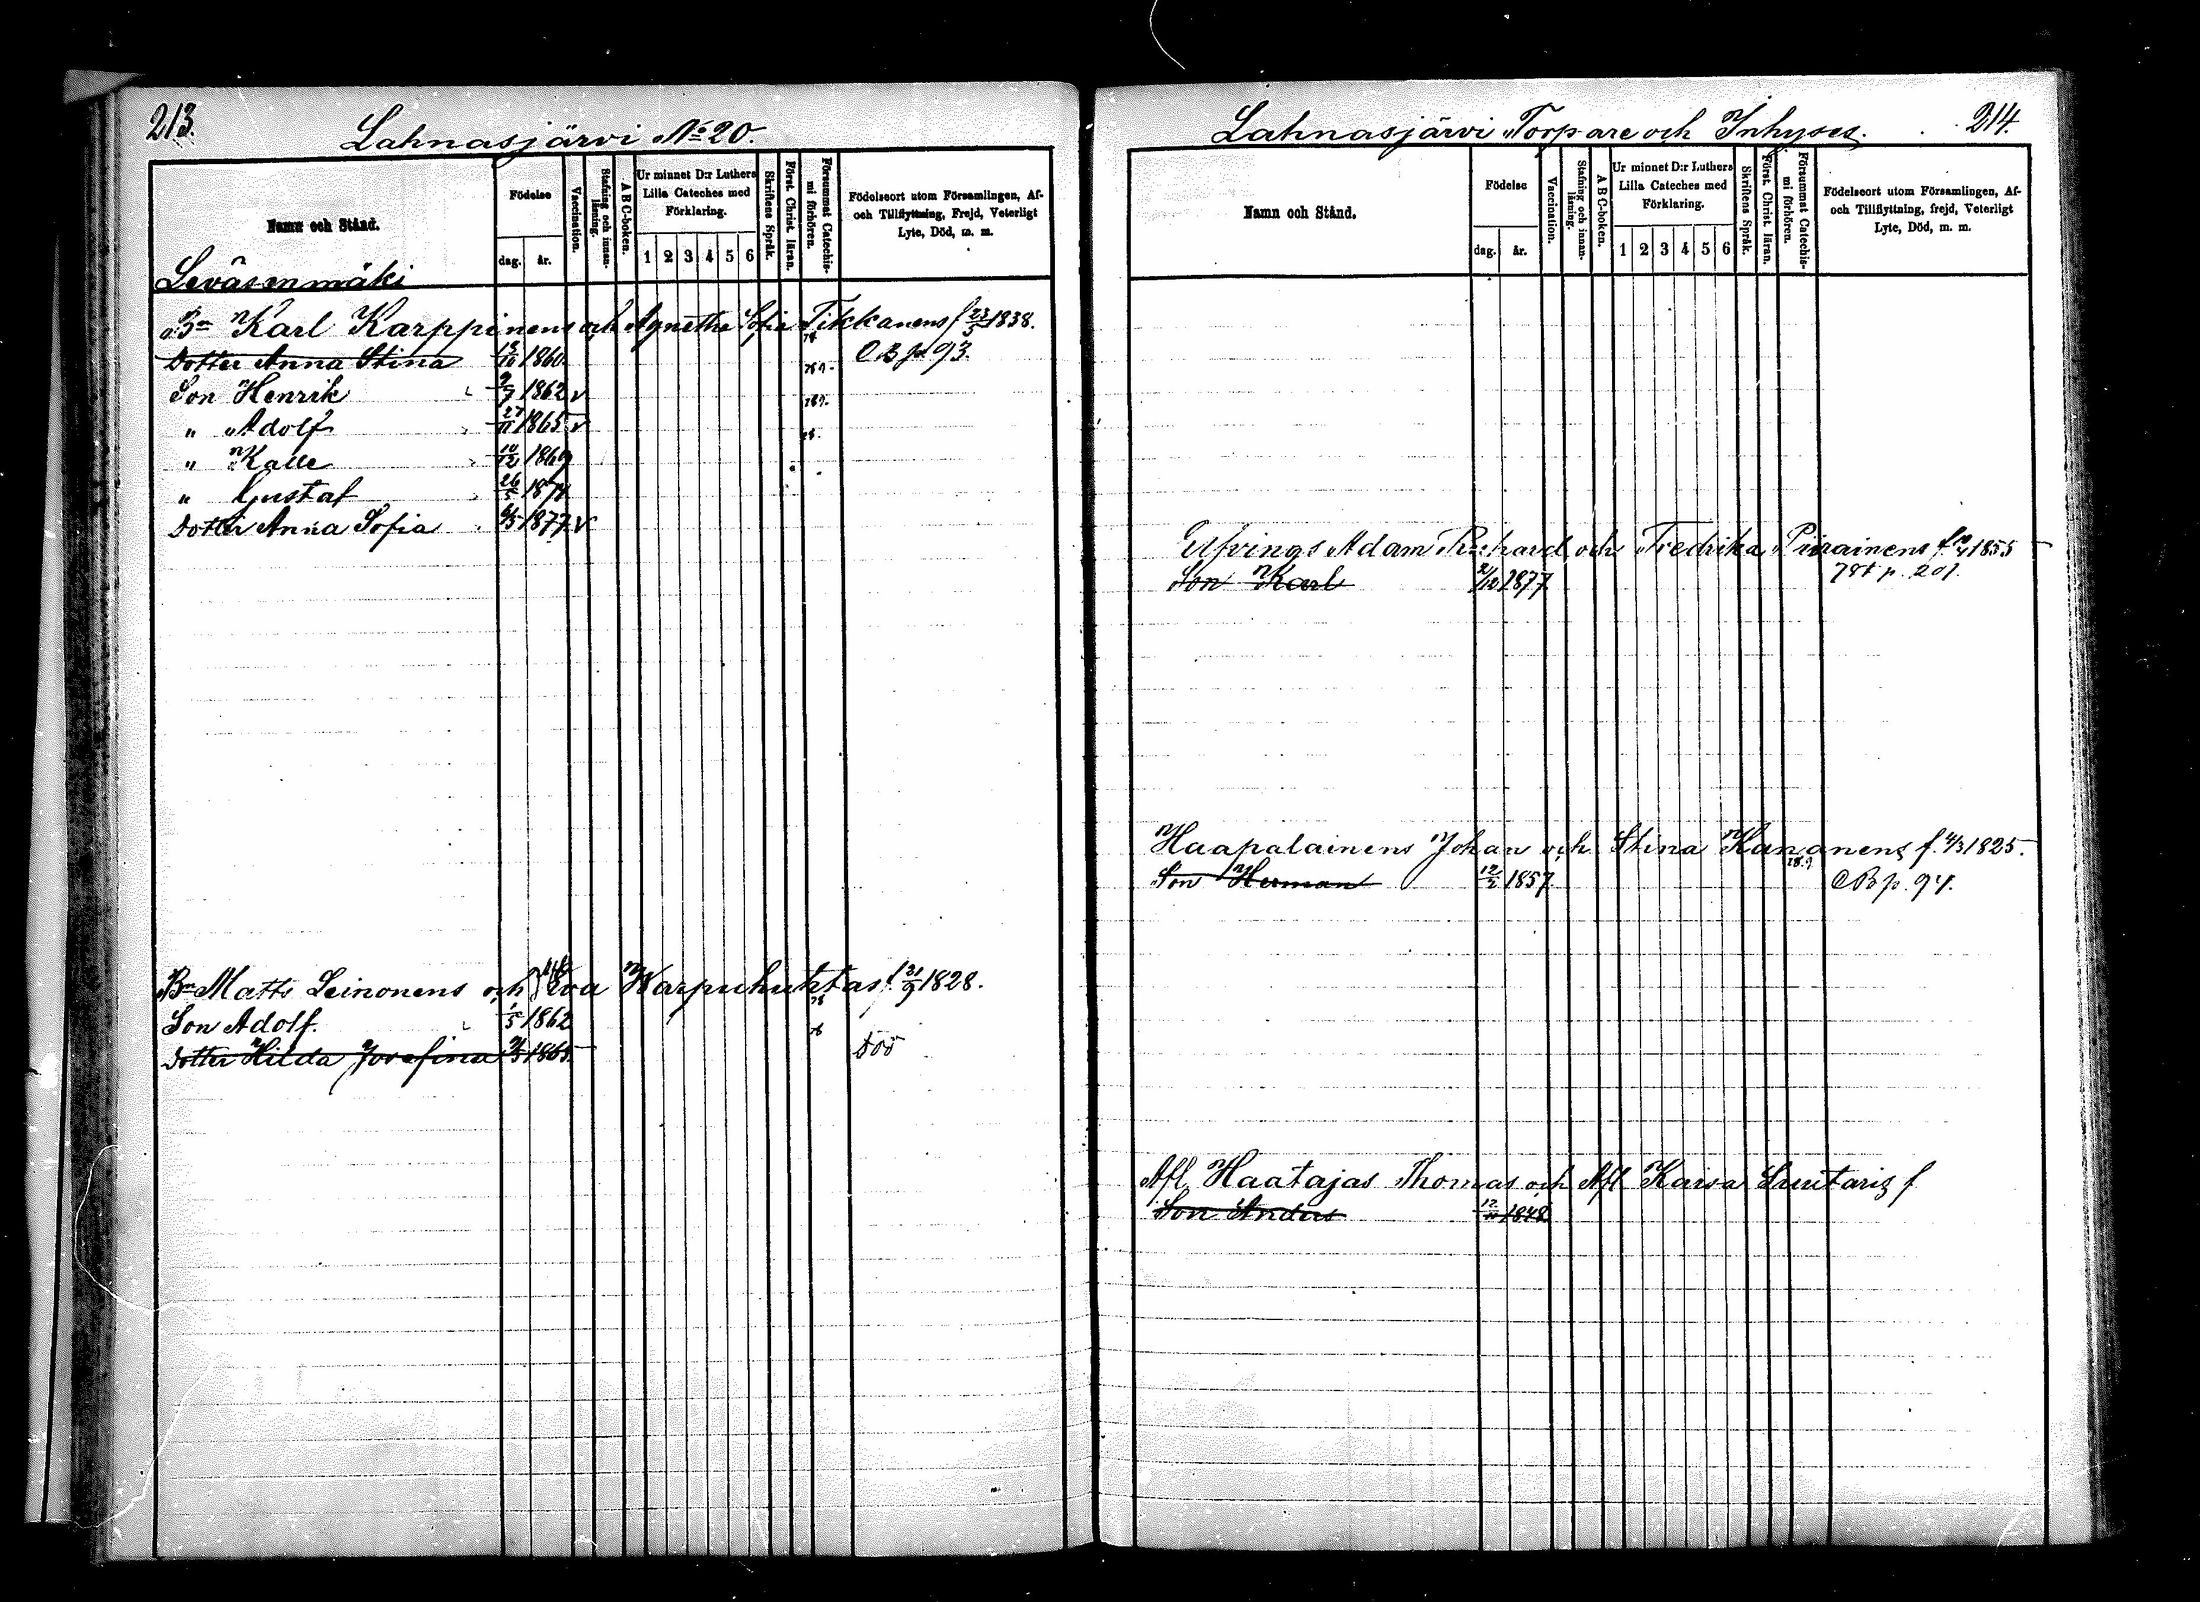 213.
Lahnasjärvi No 20.
Namn och Stånd.
Födelse
dag.
år.
Vaccination.
Stafning och innanläsning.
A B C-boken.
Ur minnet D:r Luthers Lilla Cateches med Förklaring.
1 2 3 4 5 6
Skriftens Språk.
Först. Christ. läran.
Försummat Catechismi förhören.
Födelseort utom Församlingen, Af-
och Tillflyttning, Frejd, Veterligt
Lyte, Död, m. m.
Leväsenmäki
Bn Karl Karppinens och Agnetha Sofia Tikkanens f 23/3 1838.
Dotter Anna Stina 13/10 1860 CB p 93.
Son Henrik 9/7 1862 v
" Adolf 27/11 1865 v
" Kalle 10/12 1869
" Gustaf 26/5 1874
Dotter Anna Sofia 6/5 1877 v
Bn Matts Leinonens och Eva Karpuhuhtas f. 21/9 1828.
Son Adolf. 1/5 1862
Dotter Hilda Josefina 1865 död
214.
Lahnasjärvi Torpare och Inhyses.
Namn och Stånd.
Födelse
dag.
år.
Vaccination.
Stafning och innanläsning.
A B C-boken.
Ur minnet D:r Luthers
Lilla Cateches med
Förklaring.
1 2 3 4 5 6
Skriftens Språk.
Först. Christ. läran.
Försummat Catechismi förhören.
Födelseort utom Församlingen, Af-
och Tillflyttning, frejd, Veterligt
Lyte, Död, m. m.
Ulfvings Adam Richard och Fredrika Piirainens f. 1855
Son Karl 2/12 1877 78t p. 201.
Haapalainens Johan och Stina Kananens f. 4/3 1825.
Son Herman 12/2 1857 CB p. 94.
Afl. Haatajas Thomas och Afl Kaisa Suutaris f
Son Anders 12/11 1848